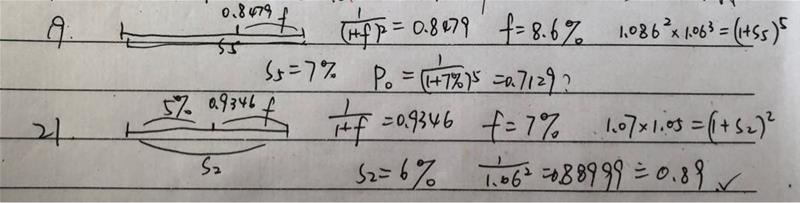 19. 0.8479 f 1/(1+f)² = 0.8479 f = 8.6% 1.086² × 1.06³ = (1+S₅)⁵
S₅
S₅ = 7% P₀ = 1/(1+7%)⁵ = 0.7129 ?
21. 5% 0.9346 f 1/1+f = 0.9346 f = 7% 1.07 × 1.05 = (1+S₂)²
S₂
S₂ = 6% 1/1.06² = 0.88999 ≐ 0.89 ✓